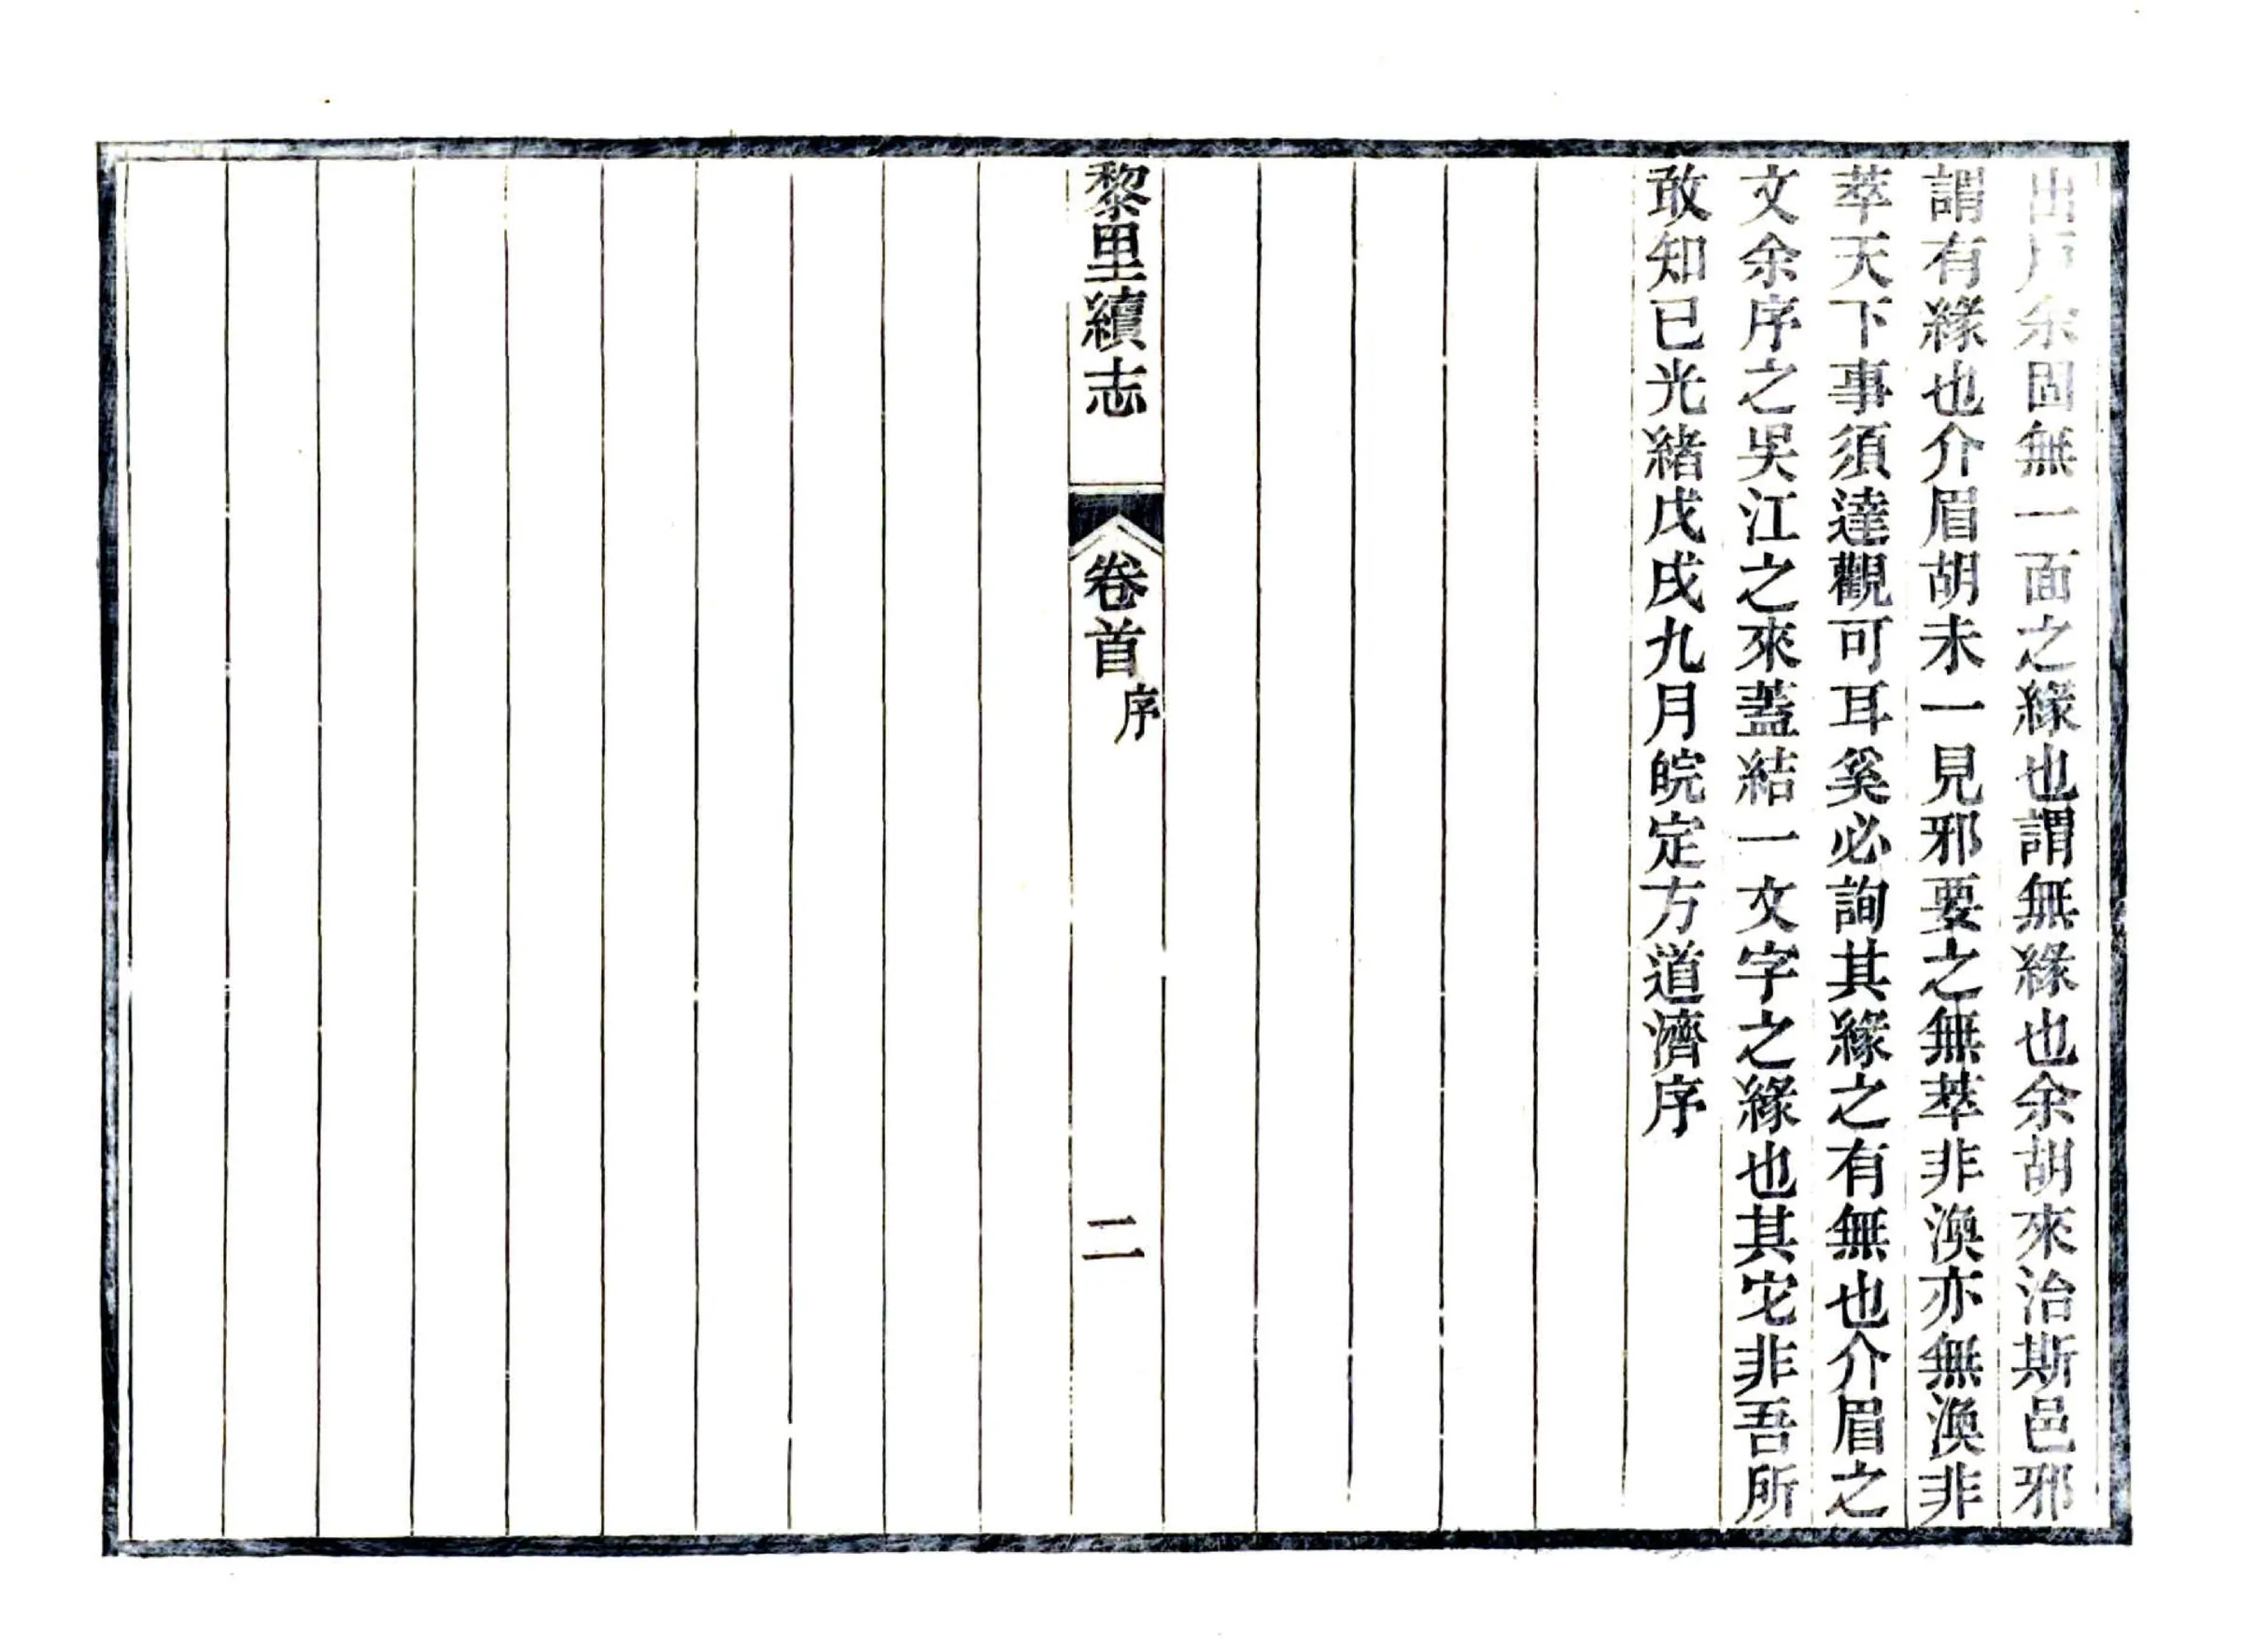 出戶余固無一面之緣也謂無緣也余胡來治斯邑邪
謂有緣也介眉胡未一見邪要之無萃非渙亦無渙非
萃天下事須達觀可耳奚必詢其緣之有無也介眉之
文余序之吳江之來蓋結一文字之緣也其它非吾所
敢知已光緒戊戌九月皖定方道濟序
黎里續志
卷首
序
二